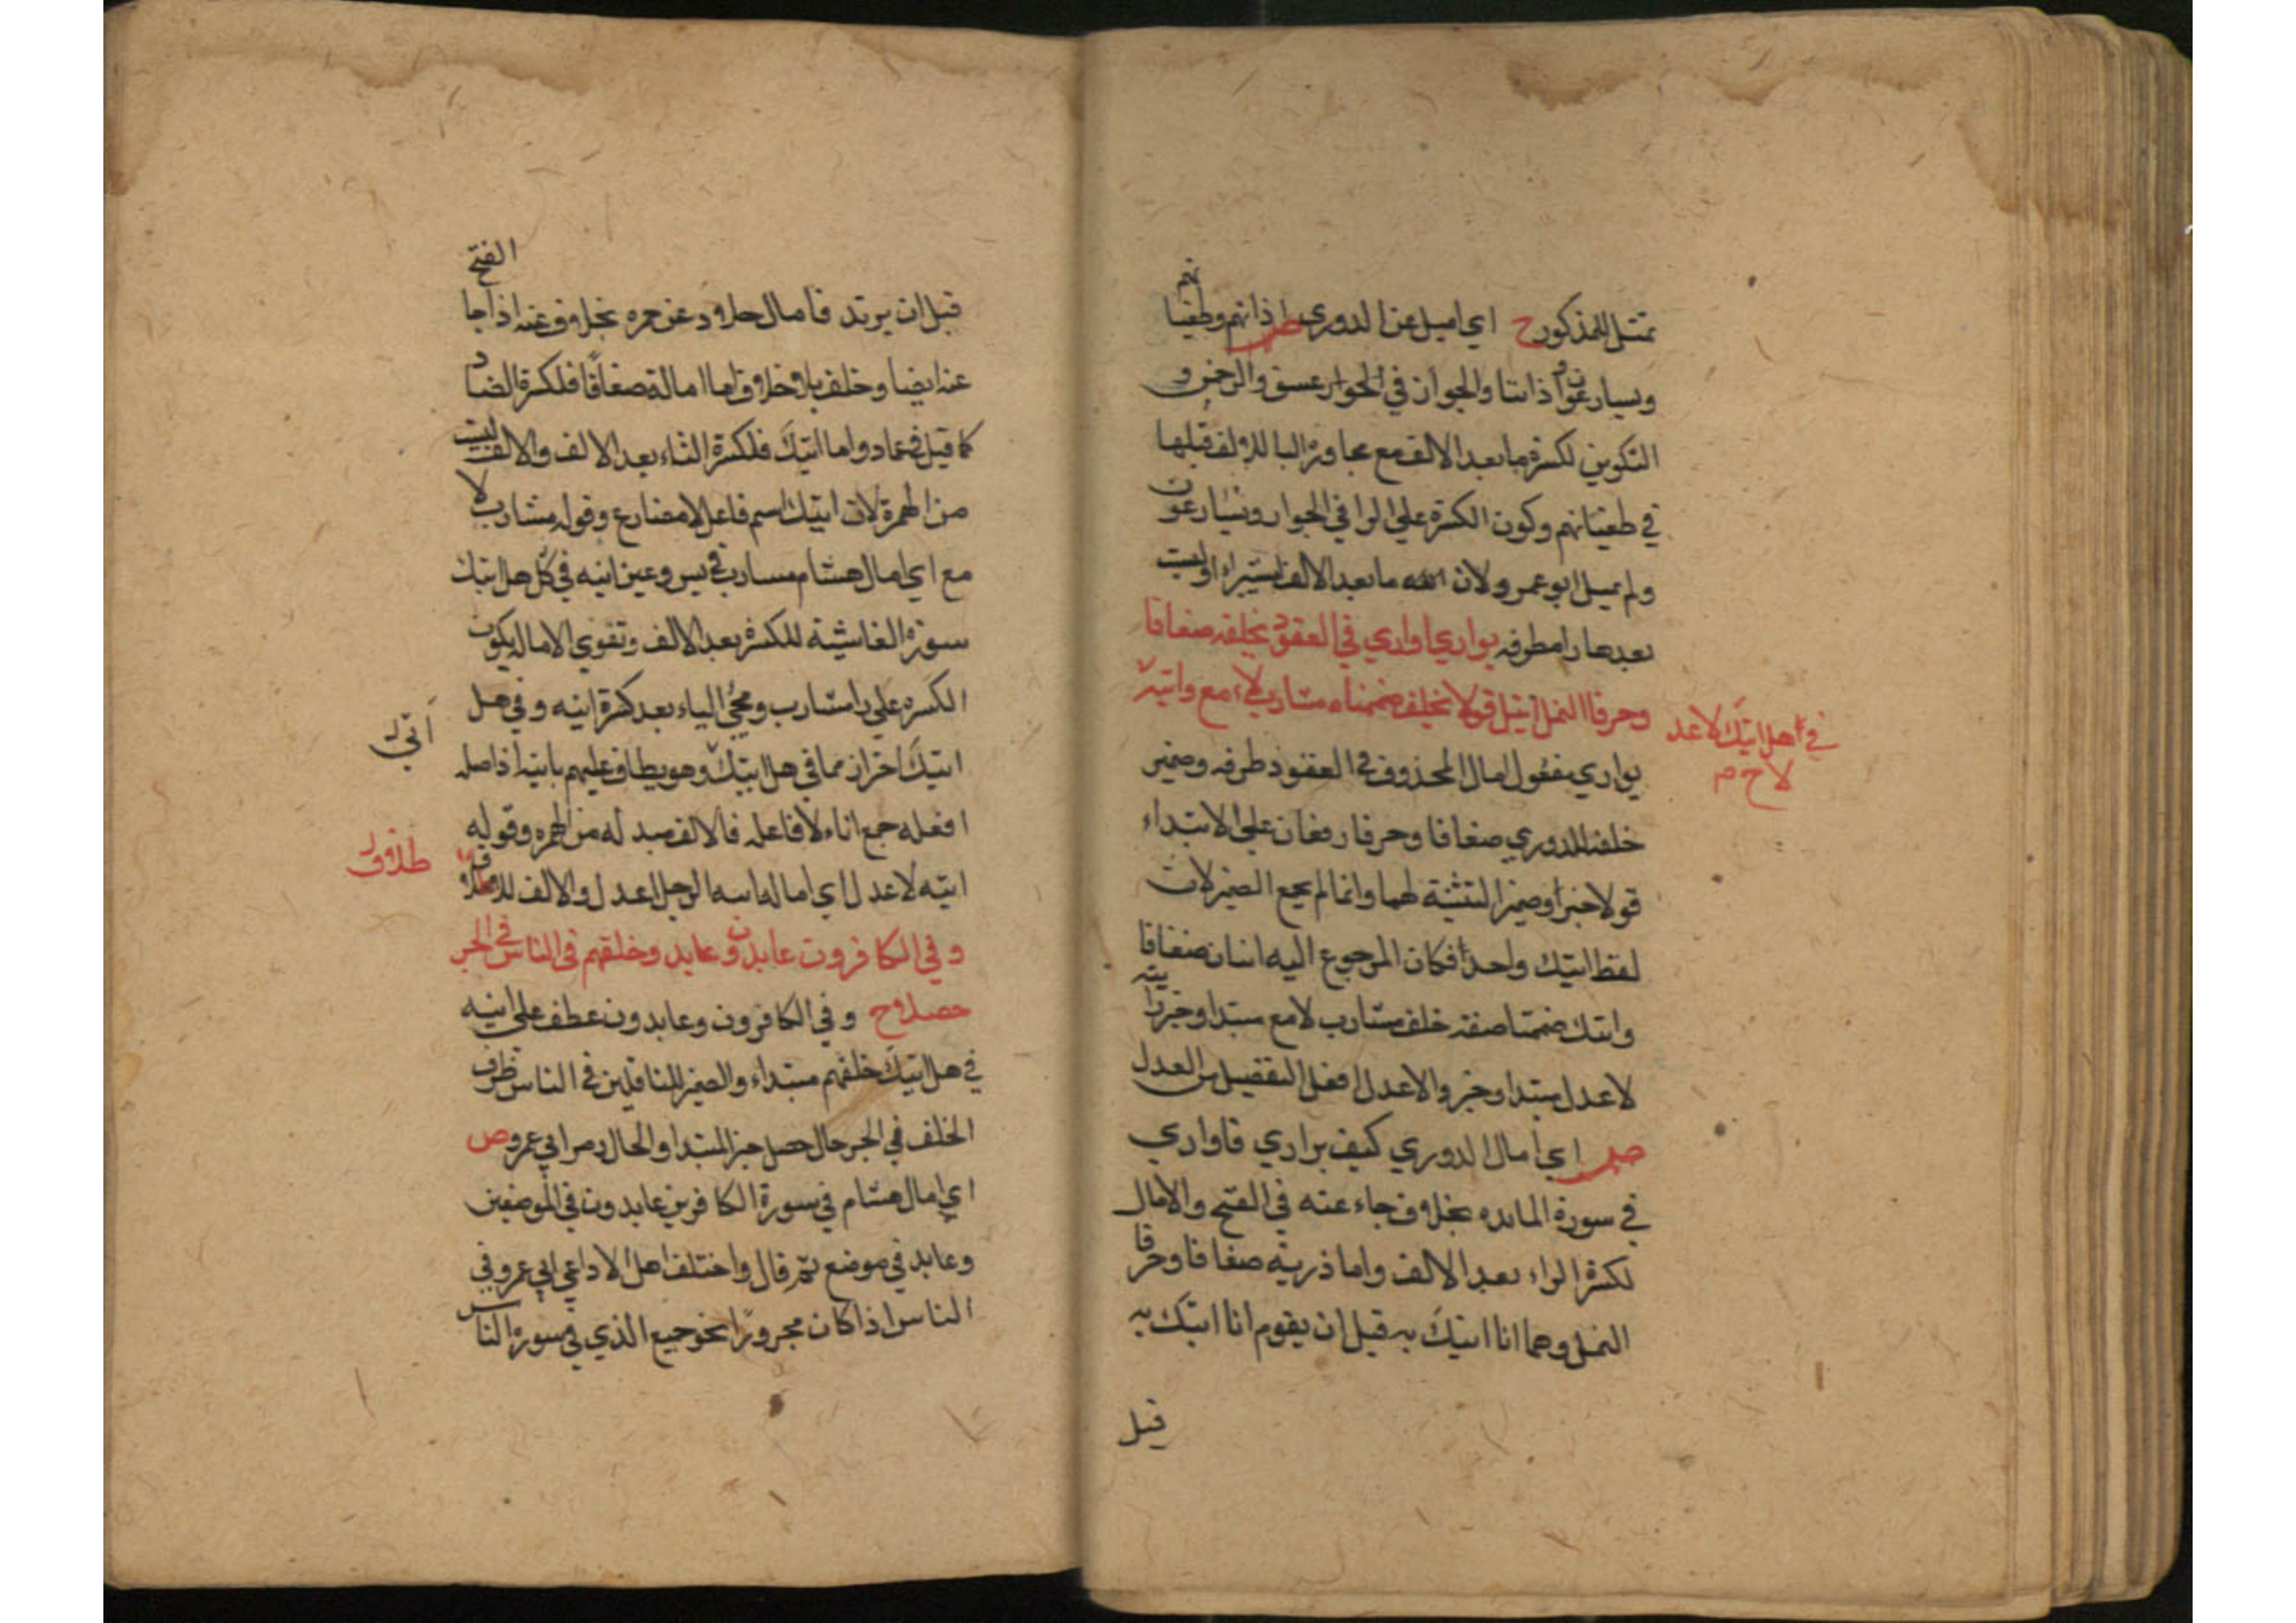 تمثل للمذكور ح اي اميل عن الدوري ص اذانهم وطغيا
نهم
ويسارعون و اذاننا والجوار في الجوار عسق والرحمن و
التكوير لكسرة ما بعد الالف مع مجاوزة اليا للالف قبلها
في طغيانهم وكون الكسرة على الرا في الجوار ويسارعون
ولم يميل ابو عمرو لان ما بعد الالف ليست
بعدها را مطرفه يواري اواري في العقود بخلفه ضعافا
وحرفا النمل اتيك قولا بخلف ضممناه مشارب لامع وانية
في هل اتيك لاعد
لا ح م
يواري مفعول امال المحذوف في العقود ظرفه وضمير
خلفه للدوري ضعافا وحرفا رفعان على الابتداء
قولا خبر وضمير التثنية لهما وانما لم يجمع الضمير لان
لفظ اتيك واحدا فكان المرجوع اليه اثنان ضعافا
واتيك ضممتا صفة خلف مشارب لامع مبتدا وخبر انية
لاعدل مبتدا وخبر والاعدل افعل التفضيل من العدل
ص اي امال الدوري كيف يواري فاواري
في سورة المائده بخلاف جاء عنه في الفتح والامال
لكسرة الراء بعد الالف واما ذرية ضعافا وحرفا
النمل وهما انا اتيك به قبل ان يقوم انا اتيك به
قبل
قبل ان يرتد فامال خلاد عن حمزه بخلاف عنه اذا جا
الفتح
عنه ايضا وخلف بلا خلاف اما امالة ضعافا فلكسرة الضاد
كما قيل في عماد واما اتيك فلكسرة التاء بعد الالف والالف ليست
من الهمزة لان اتيك اسم فاعل لا مضارع وقوله مشارب لا
مع اي امال هشام مشارب في يس وعين انيه في كل هل اتيك
سورة الغاشية للكسرة بعد الالف وتقوي الاماله بكون
الكسره على را مشارب ومجئ الياء بعد كسرة انيه وفي هل
اتيك احتراز مما في هل اتيك وهو يطاف عليهم بانية اذ اصله
افعله جمع اناء لا فاعله فالالف مبدله من الهمزه وقوله
انيه لاعدل اي امالة انيه لرجل اعدل والالف للاطلاق
طلاق
وفي الكافرون عابدون وعابد وخلفهم في الناس في الجر
حصلا ح وفي الكافرون وعابدون عطف على انيه
في هل اتيك خلفهم مبتداء والضمير للناقلين في الناس ظرف
الخلف في الجر حال حصل خبر المبتدا والحال رمز ابي عمرو ص
اي امال هشام في سورة الكافرين عابدون في الموضعين
وعابد في موضع ثم قال واختلف اهل الادا عن ابي عمرو في
الناس اذا كان مجرورا نحو جميع الذي في سورة الناس